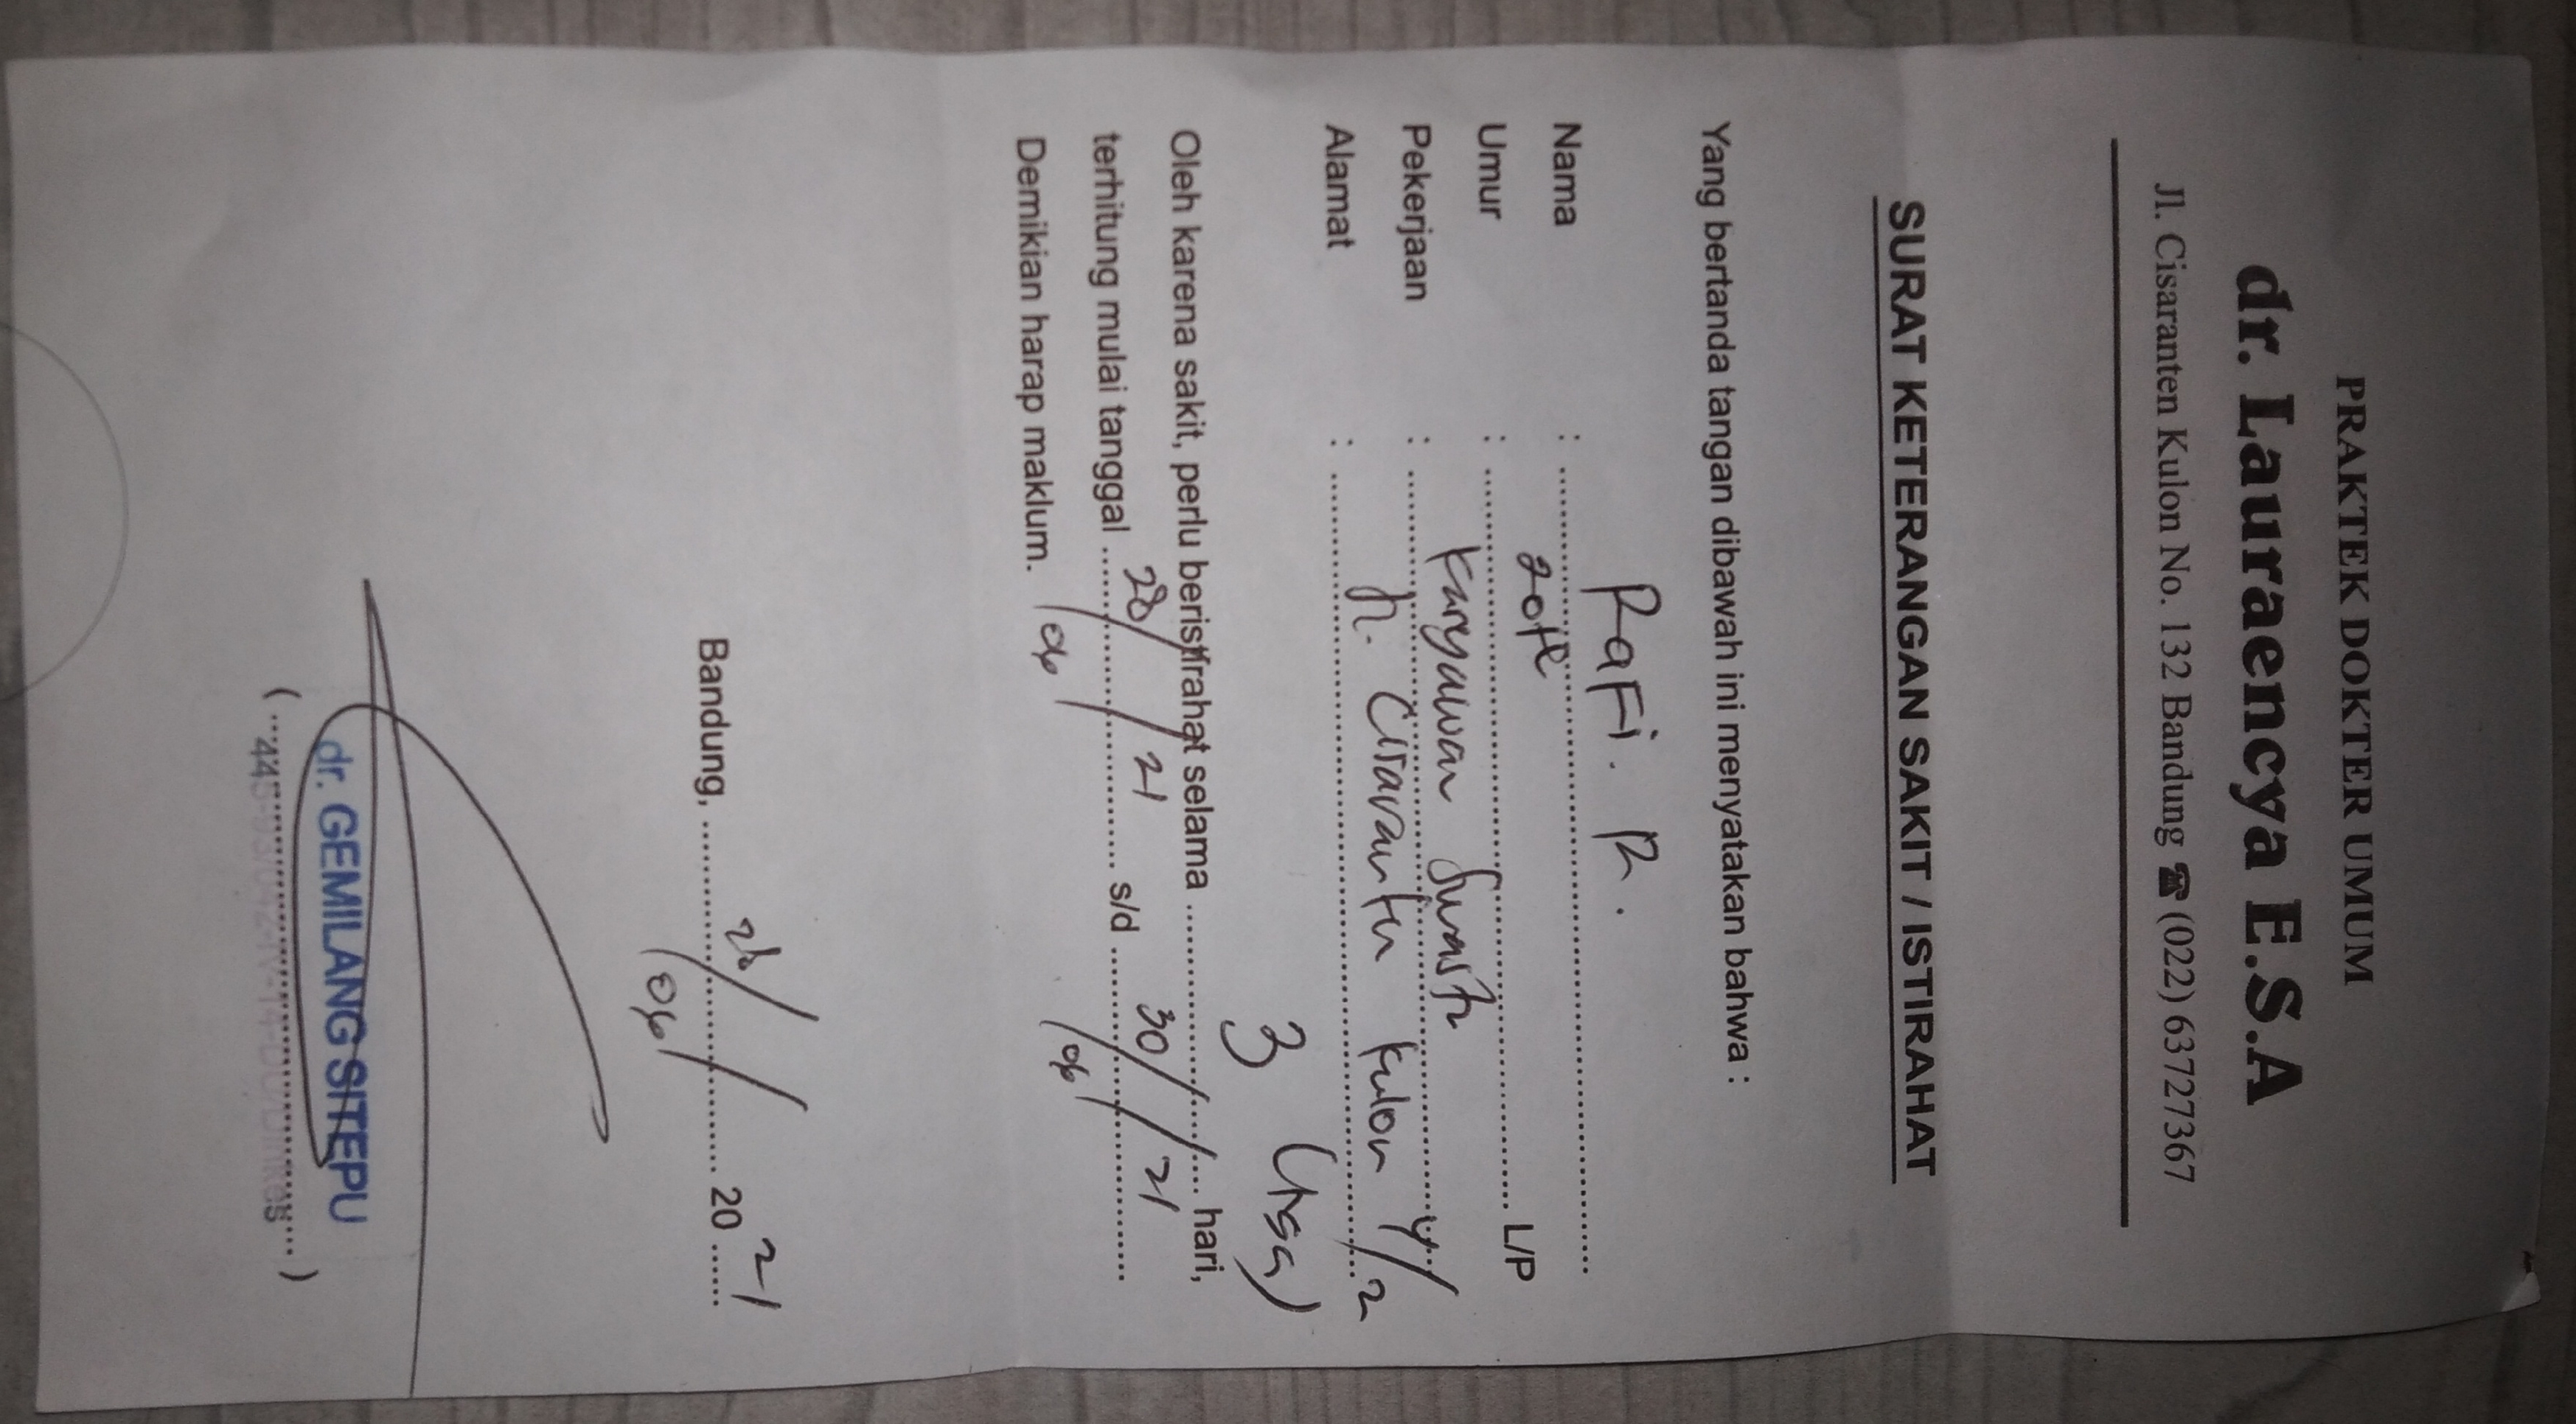 PRAKTEK DOKTER UMUM
dr. Lauraencya E.S.A
Jl. Cisaranten Kulon No. 132 Bandung ☎ (022) 63727367
SURAT KETERANGAN SAKIT / ISTIRAHAT
Yang bertanda tangan dibawah ini menyatakan bahwa :
Nama : RaFi. R.
Umur : 20 L/P
Pekerjaan : Karyawan Swasta
Alamat : Jl. Cisaranten Kulon 4/2
Oleh karena sakit, perlu beristirahat selama 3 (tiga) hari,
terhitung mulai tanggal 28/06/21 s/d 30/06/21
Demikian harap maklum.
Bandung, 28/06/ 2021
dr. GEMILANG SITEPU